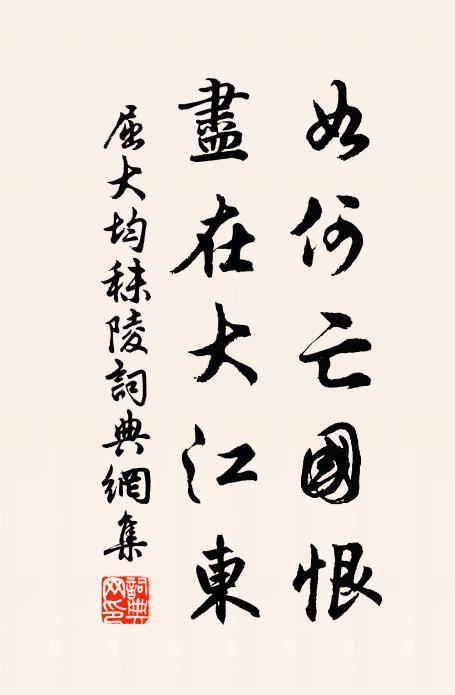 如何亡國恨
盡在大江東
屈大均秣陵詞典網集
詞典网印